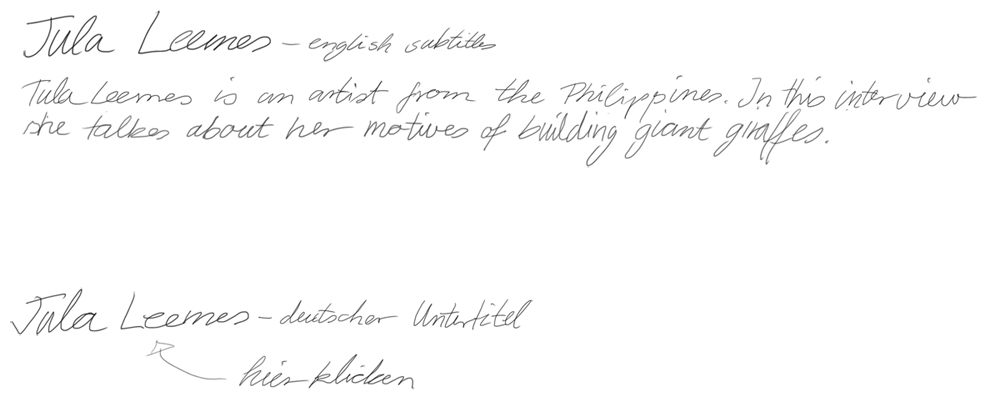 Jula Leemes – english subtitles
Jula Leemes is an artist from the Philippines. In this interview
she talkes about her motives of building giant giraffes.
Jula Leemes – deutscher Untertitel
hier klicken